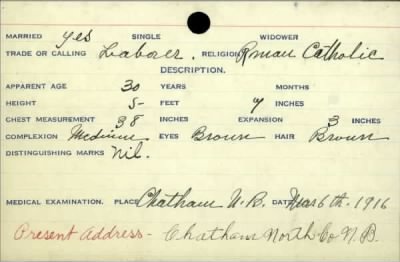 MARRIED yes SINGLE WIDOWER
TRADE OR CALLING Laborer. RELIGION Roman Catholic
DESCRIPTION.
APPARENT AGE 30 YEARS MONTHS
HEIGHT 5 FEET 7 INCHES
CHEST MEASUREMENT 38 INCHES EXPANSION 3 INCHES
COMPLEXION Medium EYES Brown HAIR Brown
DISTINGUISHING MARKS Nil.
MEDICAL EXAMINATION. PLACE Chatham N.B. DATE Mar 6th. 1916
Present Address - Chatham North Co N.B.